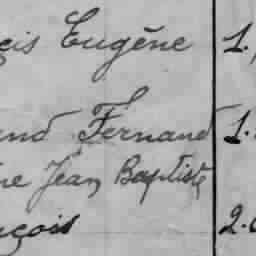 çis Eugène 1.
and Fernand 1.
ne Jean Baptiste
nçois 2.